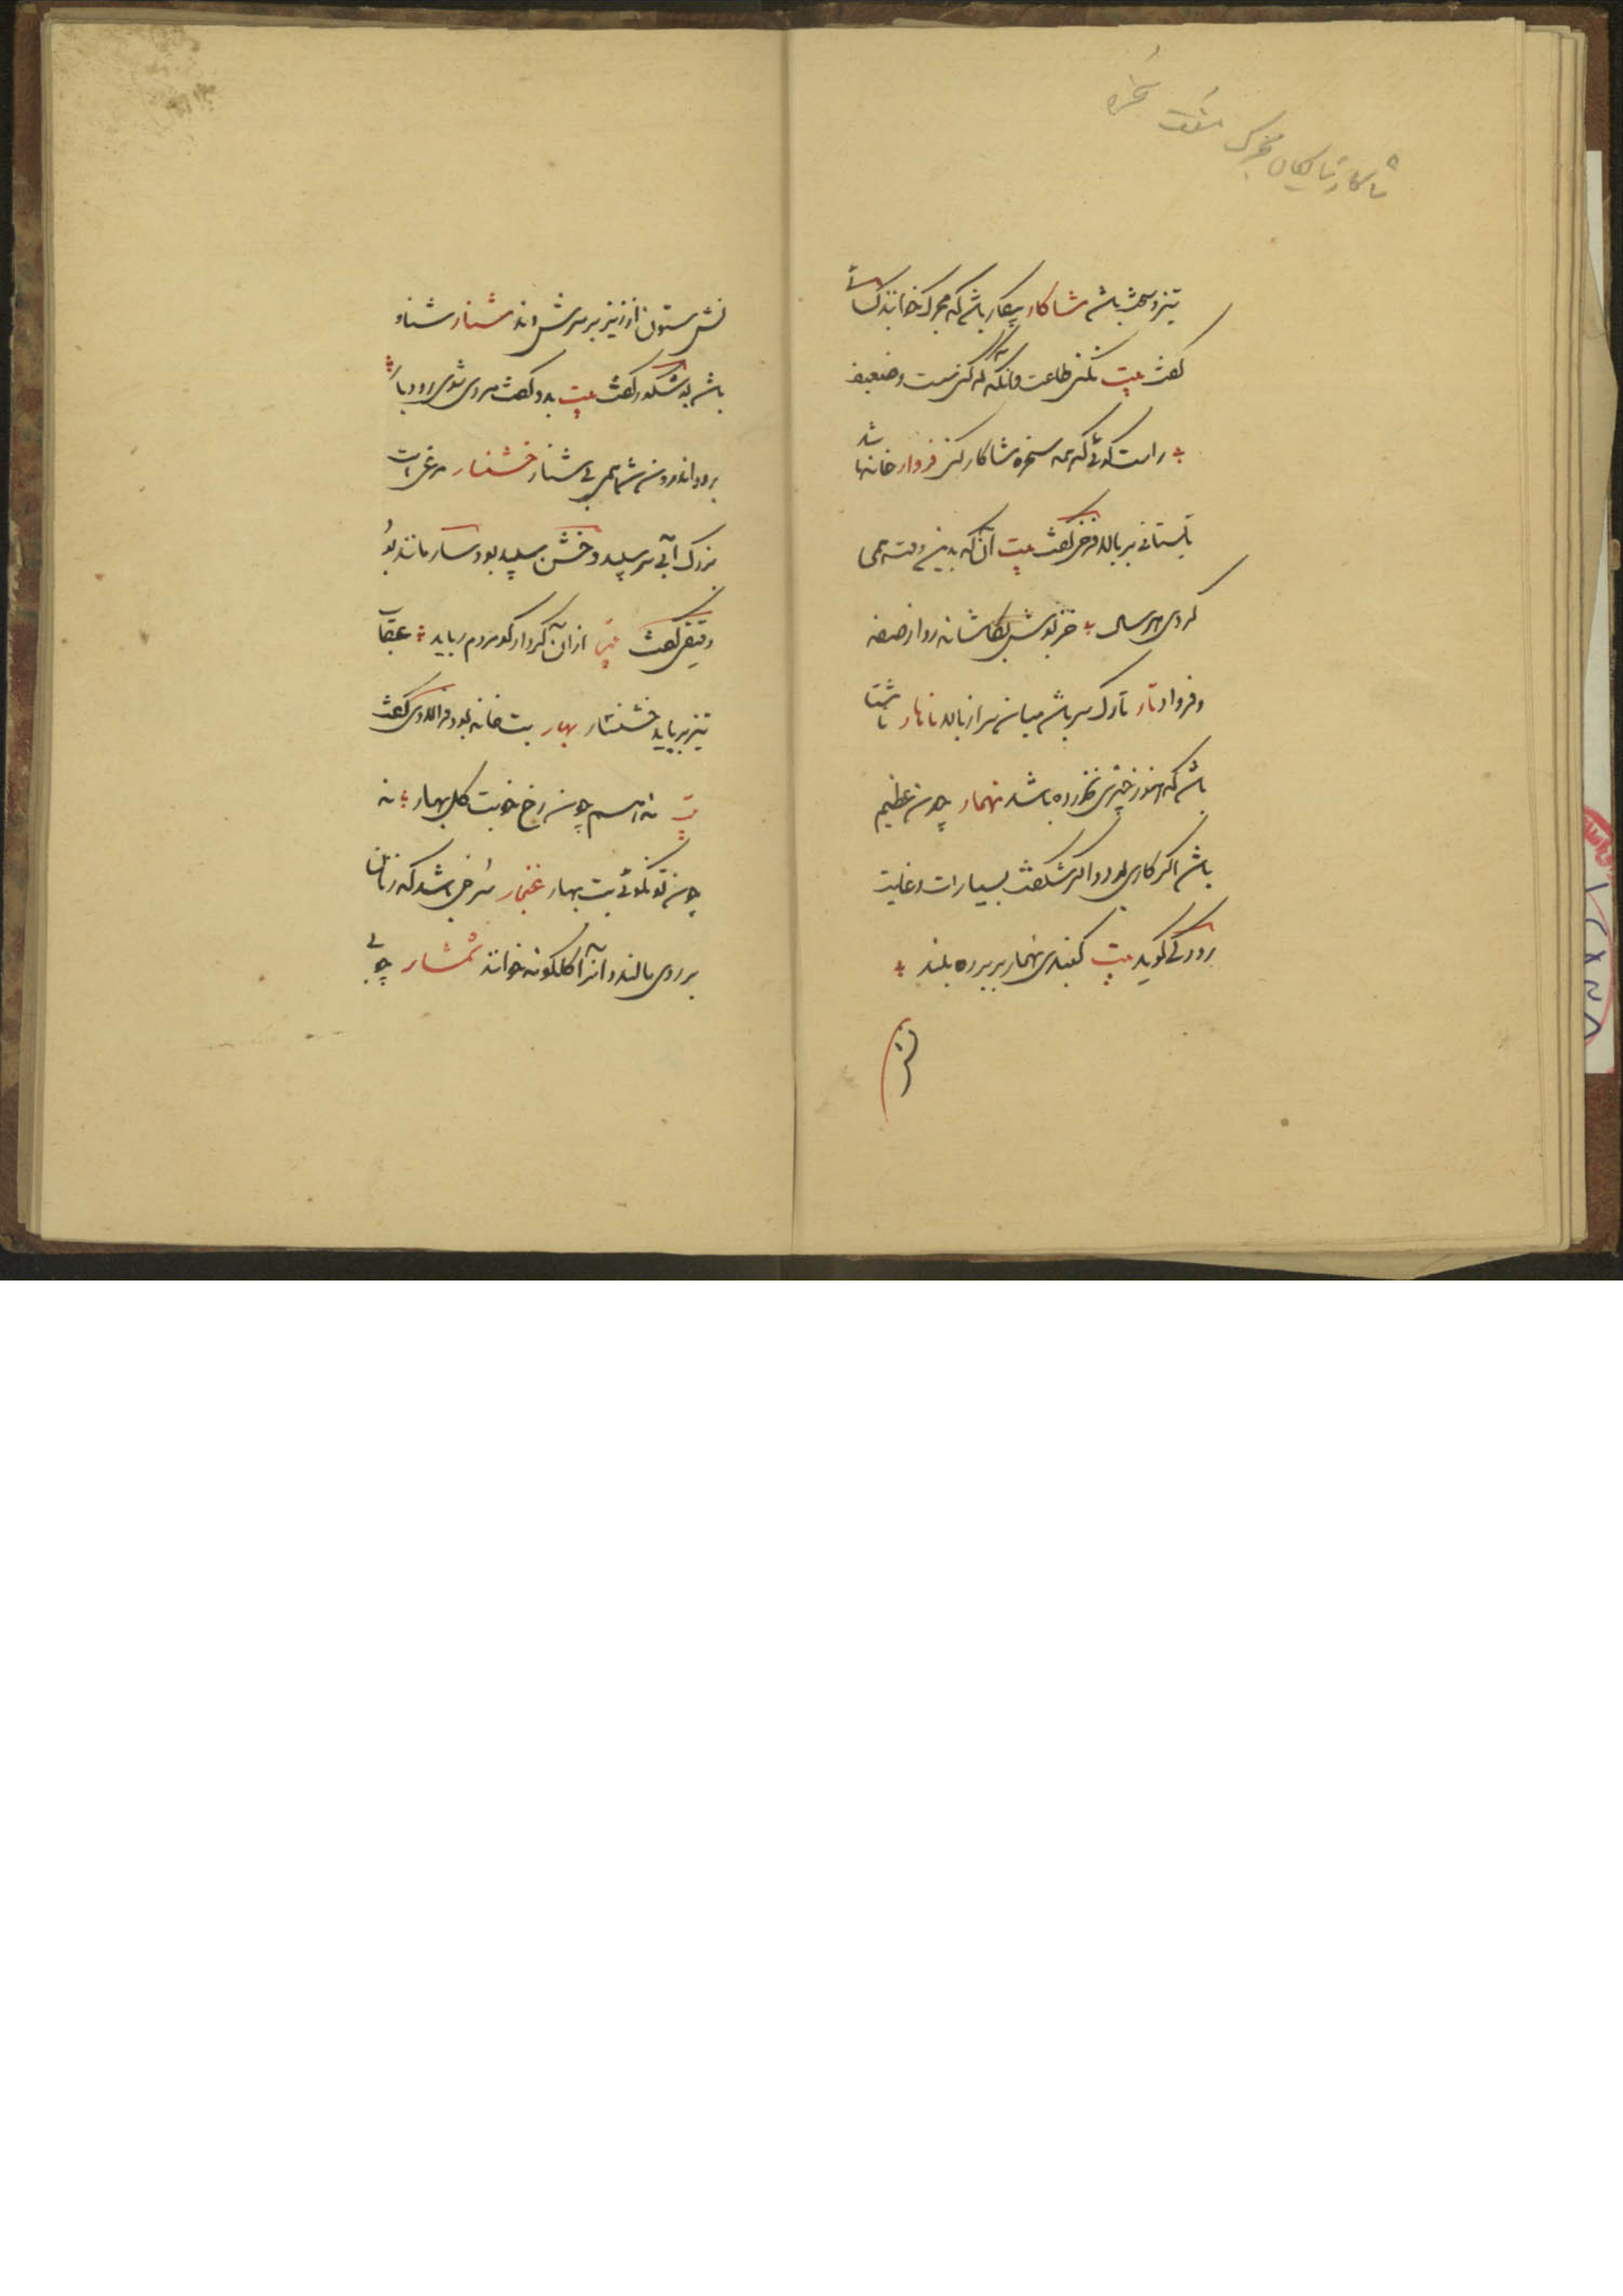 تیز و سخت باشد شاکار بیکار باشد که مجرک خوانند کسائی
گفت بیت نکنی طاعت وانگه که کنی سست و ضعیف
راست گوئی که همه سخره و شاکار کنی فروار خانهٔا
تابستانی بر بالا فرخی گفت بیت آن که بدین وقت همی
کردی هر سال خز پوش بکاشانه رو از صفه
و فروار تار تارک سر باشد میان سر از بالا ناهار ناشتا
باشد که هنوز چیزی نخورده باشد نهمار چون عظیم
باشد اگر کاری بود و اگر شگفت بسیارات و غایت
رودکی گوید بیت گنبدی نهمار بربرده بلند
نش ستون از زیر و بر سرش بند شنار شناو
باشد بوشکور گفت بیت بدو گفت مردی سوی رودبار
برود اندرون شد همی بی شنار خشنسار مرغی است
بزرگ آبی سر سپید و خشن سپید بود و سار مانند بود
دقیقی گفت از آن کردار کو مردم رباید عقاب
تیز برباید خشنسار بهار بت خانه بود و فرالاوی گفت
نه همسر چون رخ خوبت گل بهار نه
چون تو نکوئی بت بهار غنجار سرخی باشد که زنان
بر روی مالند و آنرا گلگونه خوانند شمشار چوبی